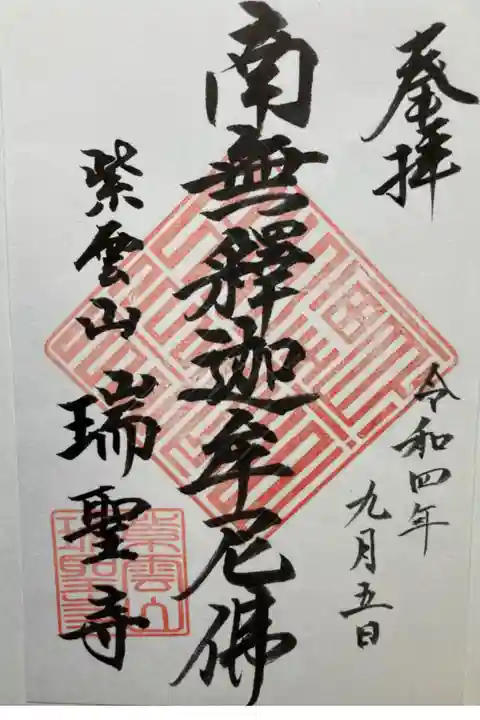 奉拝
令和四年
九月五日
南無釋迦牟尼佛
紫雲山 瑞聖寺
紫雲山
瑞聖寺